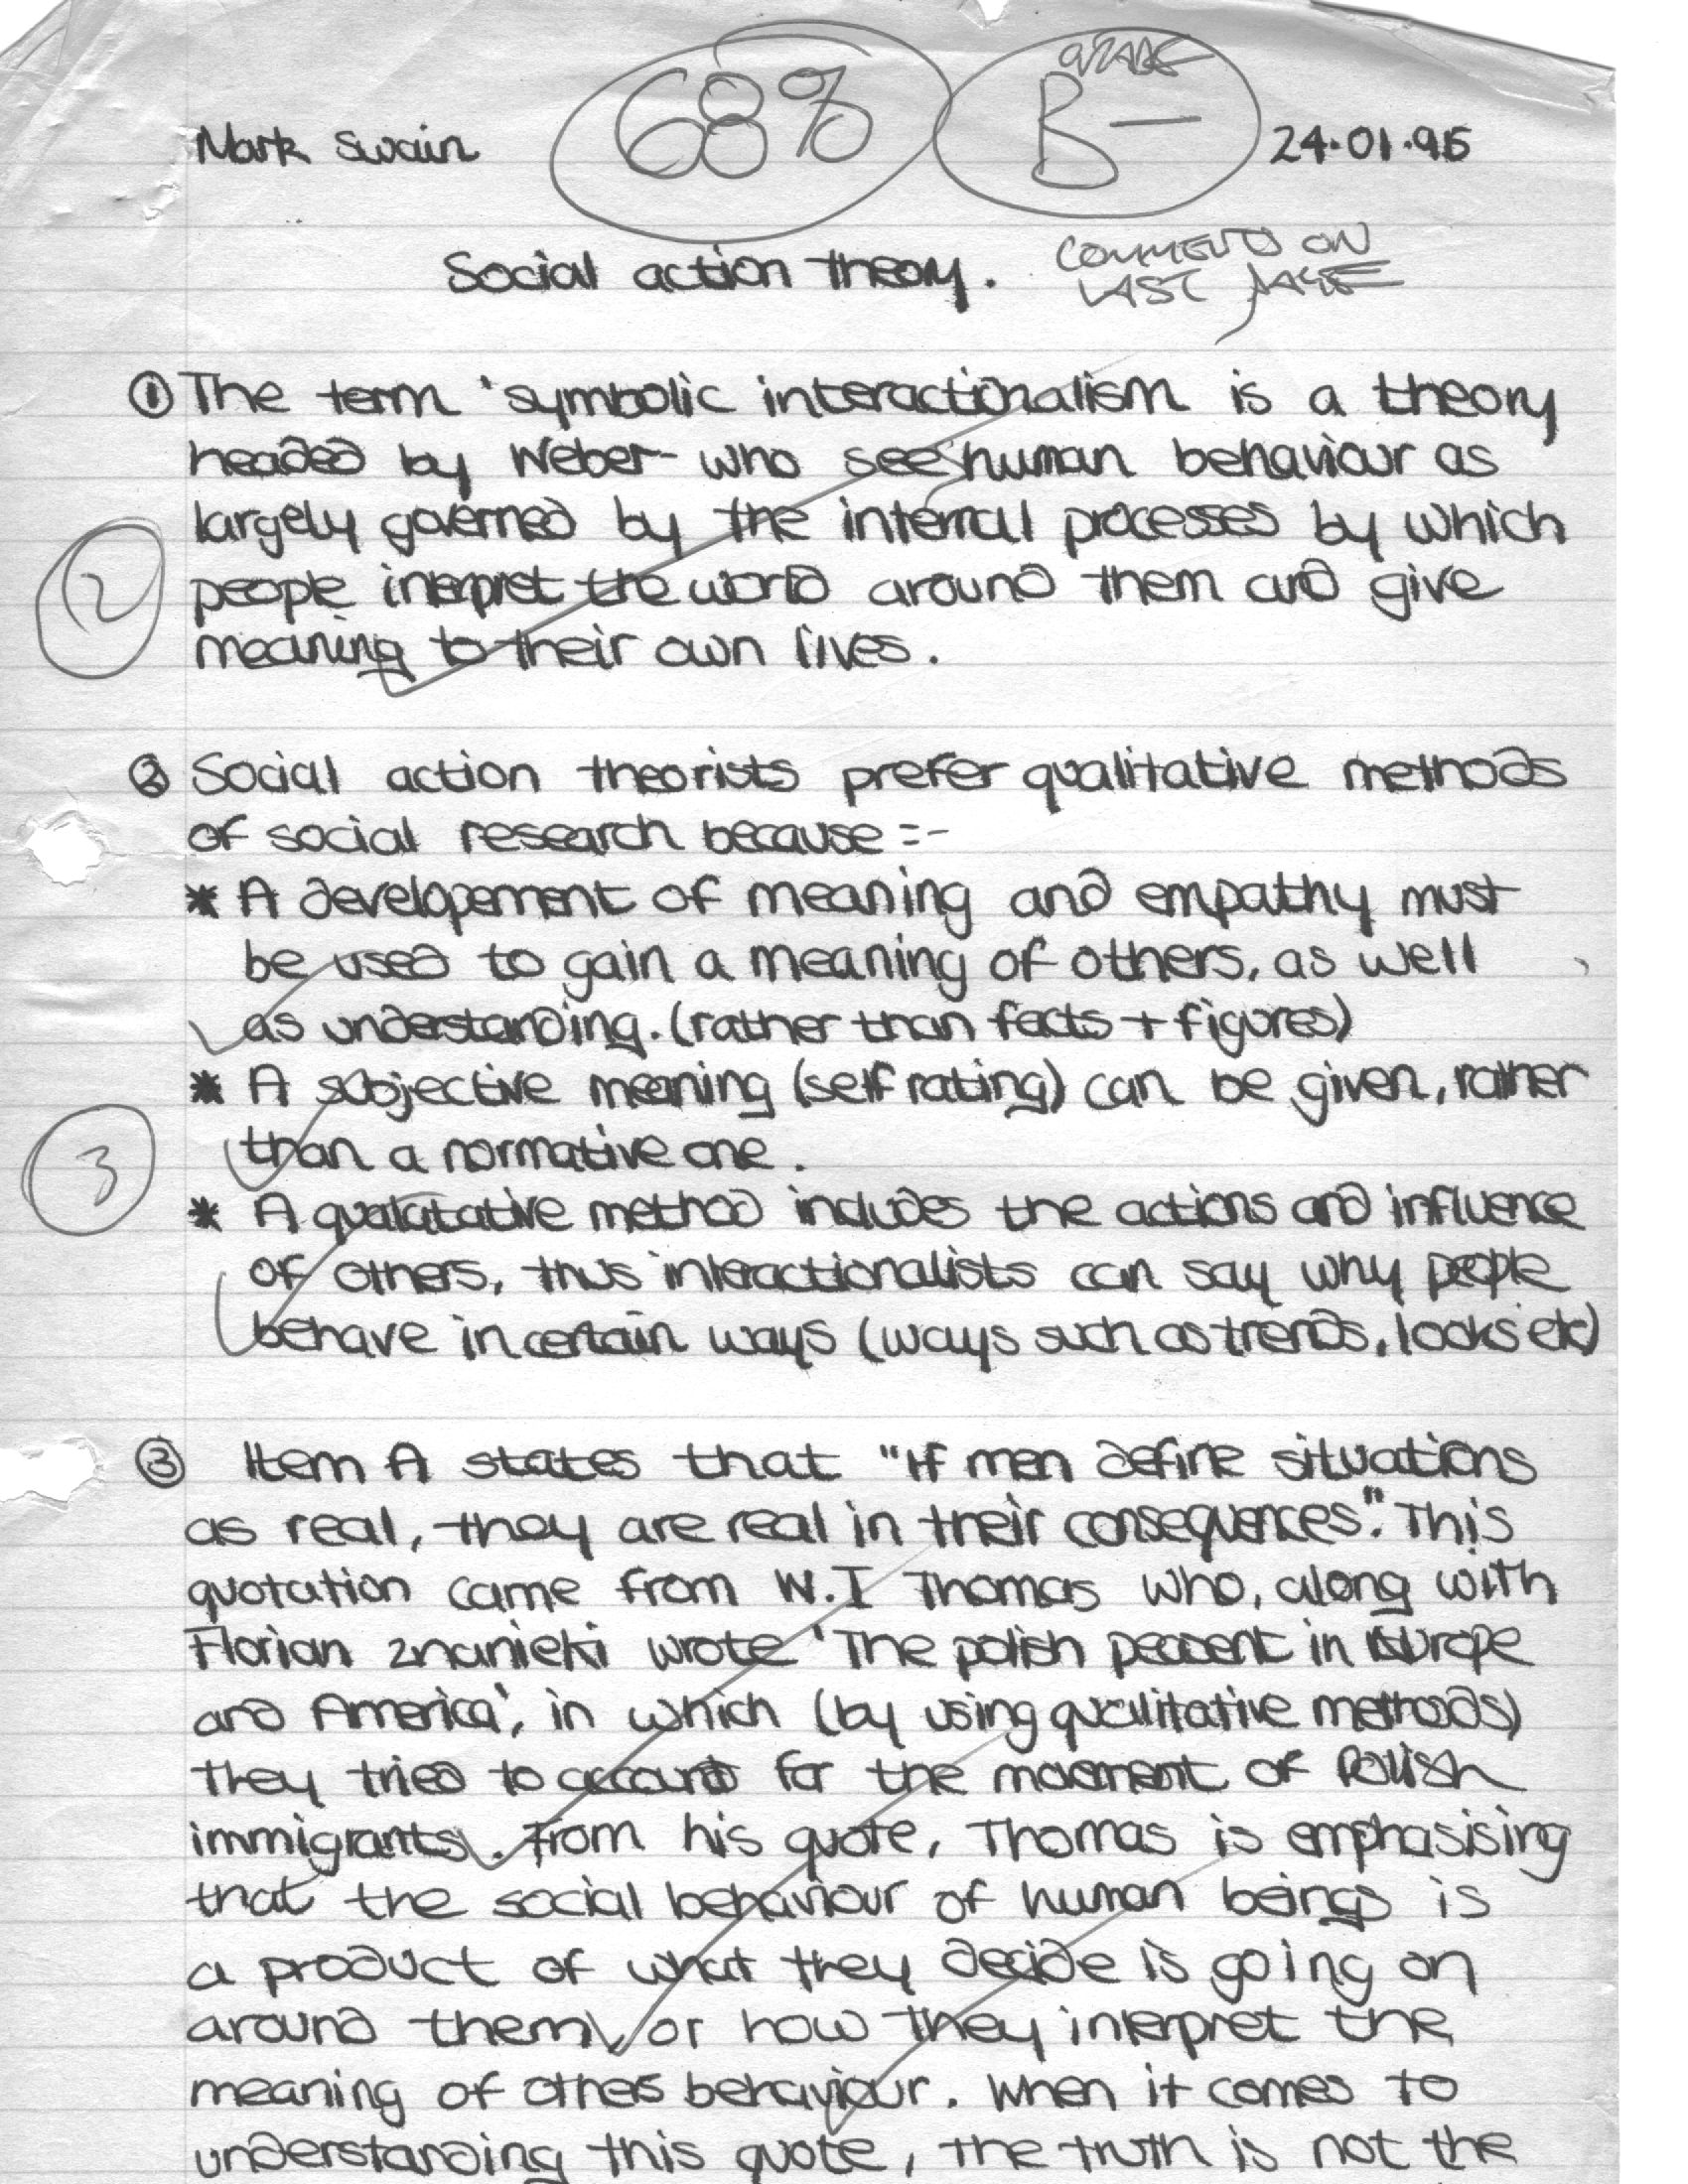 68%
GRADE
B-
Mark Swain
24.01.95
Social action theory.
COMMENTS ON
LAST PAGE
① The term 'symbolic interactionalism is a theory
headed by Weber- who sees human behaviour as
largely governed by the internal processes by which
people interpret the world around them and give
meaning to their own lives.
2
② Social action theorists prefer qualitative methods
of social research because :-
* A developement of meaning and empathy must
be used to gain a meaning of others, as well
as understanding. (rather than facts + figures)
* A subjective meaning (self rating) can be given, rather
than a normative one.
3
* A qualatative method includes the actions and influence
of others, thus interactionalists can say why people
behave in certain ways (ways such as trends, looks etc)
③ Item A states that "If men define situations
as real, they are real in their consequences". This
quotation came from W.I Thomas who, along with
Florian Znanieki wrote 'The polish peasent in Europe
and America', in which (by using qualitative methods)
they tried to account for the movement of Polish
immigrants. From his quote, Thomas is emphasising
that the social behaviour of human beings is
a product of what they decide is going on
around them or how they interpret the
meaning of others behaviour. When it comes to
understanding this quote, the truth is not the